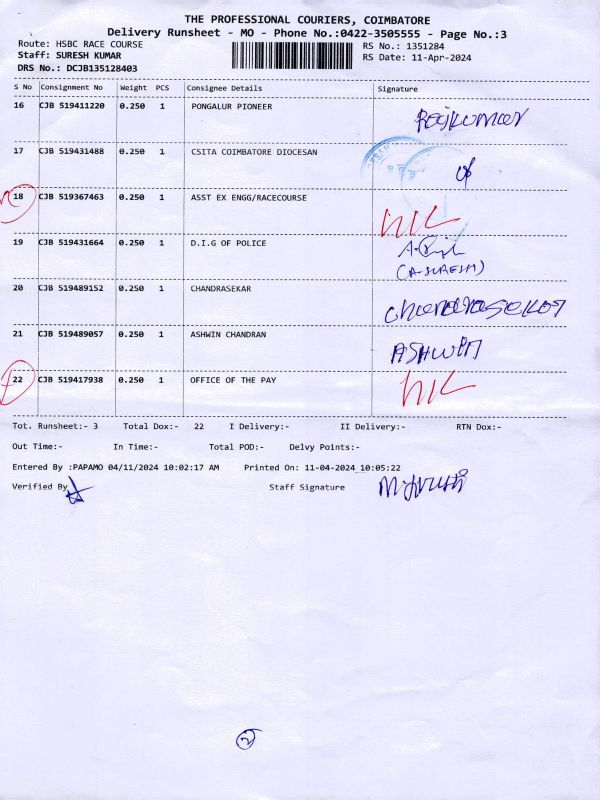 THE PROFESSIONAL COURIERS, COIMBATORE
Delivery Runsheet - MO - Phone No.:0422-3505555 - Page No.:3
Route: HSBC RACE COURSE RS No.: 1351284
Staff: SURESH KUMAR RS Date: 11-Apr-2024
DRS No.: DCJB135128403
S No Consignment No Weight PCS Consignee Details Signature
16 CJB 519411220 0.250 1 PONGALUR PIONEER Rajkumar
17 CJB 519431488 0.250 1 CSITA COIMBATORE DIOCESAN
18 CJB 519367463 0.250 1 ASST EX ENGG/RACECOURSE NIL
19 CJB 519431664 0.250 1 D.I.G OF POLICE
(A-SURESH)
20 CJB 519489152 0.250 1 CHANDRASEKAR Chandrasekar
21 CJB 519489057 0.250 1 ASHWIN CHANDRAN ASHWIN
22 CJB 519417938 0.250 1 OFFICE OF THE PAY NIL
Tot. Runsheet:- 3 Total Dox:- 22 I Delivery:- II Delivery:- RTN Dox:-
Out Time:- In Time:- Total POD:- Delvy Points:-
Entered By :PAPAMO 04/11/2024 10:02:17 AM Printed On: 11-04-2024 10:05:22
Verified By Staff Signature
2